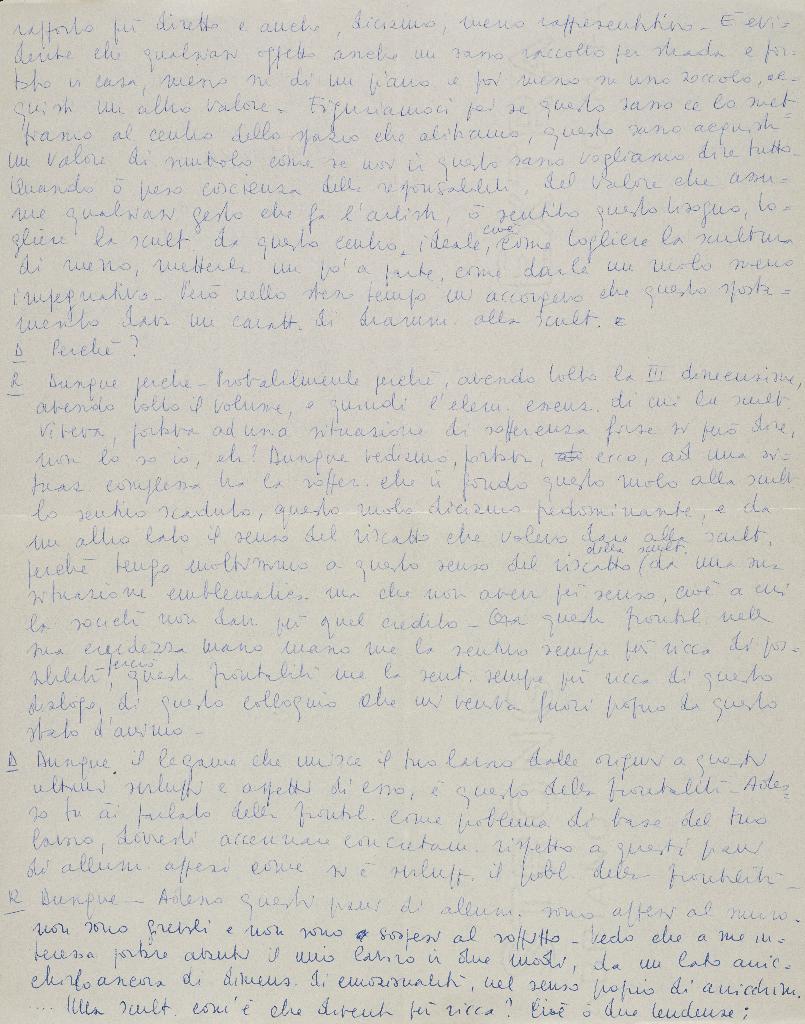 rapporto più diretto e anche, diciamo, meno rappresentativo - È evi=
dente che qualsiasi oggetto anche un sasso raccolto per strada e por=
tato in casa, messo su di un piano e poi messo su uno zoccolo, ac=
quisti un altro valore - Figuriamoci poi se questo sasso ce lo met=
tiamo al centro dello spazio che abitiamo, questo sasso acquista
un valore di simbolo come se noi in questo sasso vogliamo dire tutto.
Quando ò preso coscienza delle responsabilità, del valore che assu=
me qualsiasi gesto che fa l'artista, ò sentito questo bisogno, to=
gliere la scult. da questo centro, ideale, cioè come togliere la scultura
di mezzo, metterla un po' a parte, come darle un ruolo meno
impegnativo - Però nello stesso tempo mi accorgevo che questo sposta=
mento dava un caratt. di dramm. alla scult.
D Perché?
R Dunque perché - Probabilmente perché, avendo tolto la III dimensione,
avendo tolto il volume, e quindi l'elem. essenz. di cui la scult.
viveva, portava ad una situazione di sofferenza forse si può dire,
non lo so io, eh! Dunque vediamo, portava, ecco, ad una si=
tuaz. complessa tra la soffer. che in fondo questo ruolo alla scult.
lo sentivo scaduto, questo ruolo diciamo predominante, e da
un altro lato il senso del riscatto che volevo dare alla scult.
perché tengo moltissimo a questo senso del riscatto della scult. (da una sua
situazione emblematica ma che non aveva più senso, cioè a cui
la società non dava più quel credito - Ora questa frontal. nella
sua crudezza mano mano me la sentivo sempre più ricca di pos=
sibilità, perciò questa frontalità me la sent. sempre più ricca di questo
dialogo, di questo colloquio che mi veniva fuori proprio da questo
stato d'animo -
D Dunque il legame che unisce il tuo lavoro dalle origini a questi
ultimi sviluppi e aspetti di esso, è questo della frontalità - Ades=
so tu ài parlato della frontal. come problema di base del tuo
lavoro, dovresti accennare concretam. rispetto a questi piani
di allum. appesi come si è svilupp. il probl. della frontalità -
R Dunque - Adesso questi piani di allum. sono appesi al muro -
non sono gravili e non sono sospesi al soffitto - Vedo che a me in=
teressa portare avanti il mio lavoro in due modi, da un lato arric=
chirlo ancora di dimens. di emozionalità, nel senso proprio di arricchim.
.... Una scult. com'è che diventa più ricca? Cioè ò due tendenze: